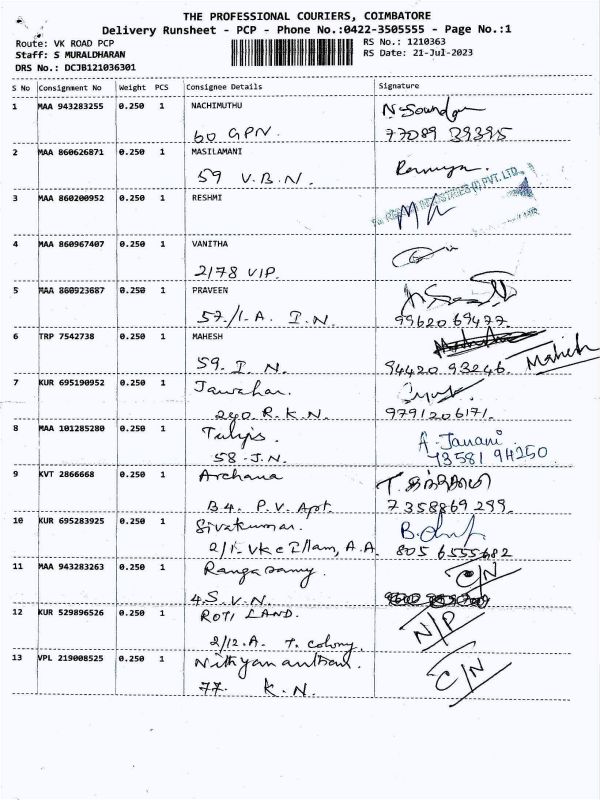 THE PROFESSIONAL COURIERS, COIMBATORE
Delivery Runsheet - PCP - Phone No.:0422-3505555 - Page No.:1
Route: VK ROAD PCP
Staff: S MURALDHARAN
DRS No.: DCJB121036301
RS No.: 1210363
RS Date: 21-Jul-2023
S No Consignment No Weight PCS Consignee Details Signature
1 MAA 943283255 0.250 1 NACHIMUTHU
60 GPN. 77089 39395
2 MAA 860626871 0.250 1 MASILAMANI
59 V.B.N. Ramya.
3 MAA 860200952 0.250 1 RESHMI
INDUSTRIES (I) PVT. LTD.
4 MAA 860967407 0.250 1 VANITHA
2/78 VIP.
5 MAA 860923687 0.250 1 PRAVEEN
57/1.A. I.N. 99620 69477.
6 TRP 7542738 0.250 1 MAHESH
59. I. N. 94420 93246. Mahesh
7 KUR 695190952 0.250 1 Jawahar.
290. R.K.N. 9791206171.
8 MAA 101285280 0.250 1 Tulips. A. Janani
58-J.N. 73581 94250
9 KVT 2866668 0.250 1 Archana
B4. P.V. Apt. 7358869299.
10 KUR 695283925 0.250 1 Sivakumar.
2/1- VKC Illam, A.A. 805 6555682
11 MAA 943283263 0.250 1 Rangasamy. C/N
4.S.V.N.
12 KUR 529896526 0.250 1 ROTI LAND. N/P
2/12.A. T. Colony.
13 VPL 219008525 0.250 1 Nithyanantham. C/N
77. K.N.